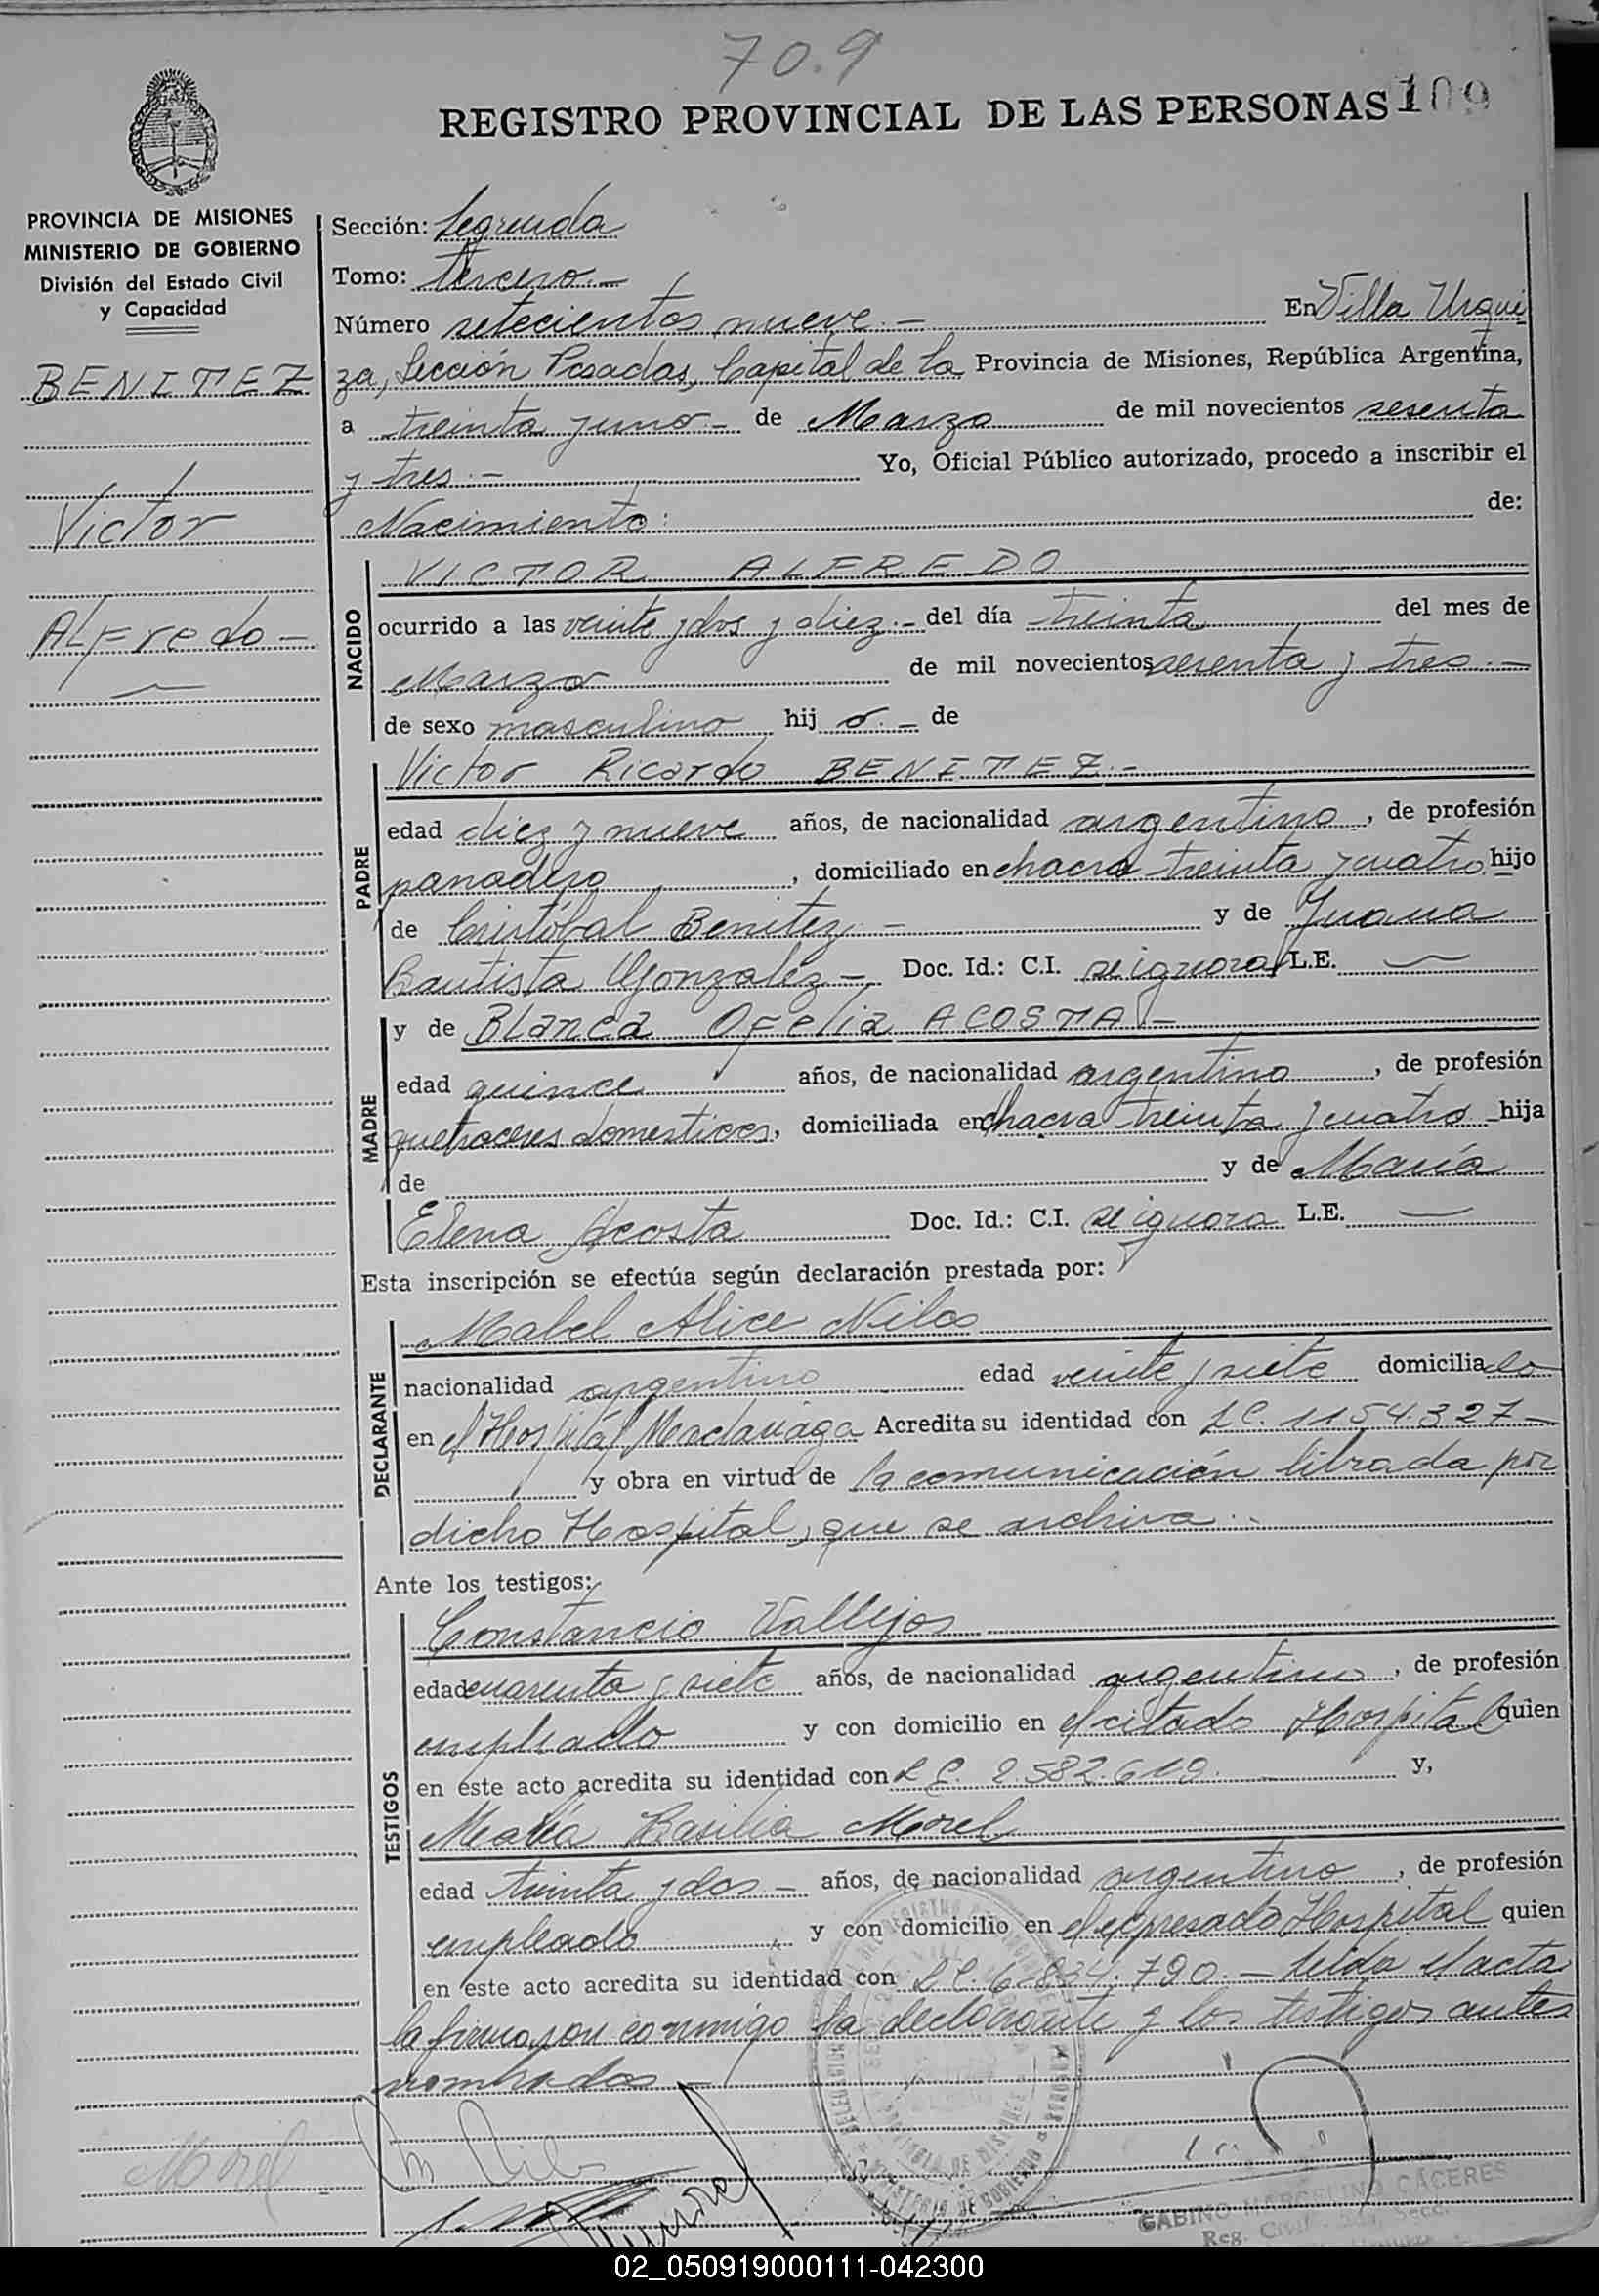 70.9
REGISTRO PROVINCIAL DE LAS PERSONAS 109
PROVINCIA DE MISIONES
MINISTERIO DE GOBIERNO
División del Estado Civil
y Capacidad
BENITEZ
Victor
ALFredo —
Sección: Segunda
Tomo: Tercero.—
Número setecientos nueve.— En Villa Urqui
za, Sección Posadas, Capital de la Provincia de Misiones, República Argentina,
a treinta y uno.— de Marzo de mil novecientos sesenta
y tres.— Yo, Oficial Público autorizado, procedo a inscribir el
Nacimiento: de:
NACIDO
VICTOR ALFREDO
ocurrido a las veinte y dos y diez.— del día treinta del mes de
Marzo de mil novecientos sesenta y tres.—
de sexo masculino hij o.— de
PADRE
Victor Ricardo BENITEZ.—
edad diez y nueve años, de nacionalidad argentino, de profesión
panadero, domiciliado en chacra treinta y cuatro hijo
de Cristóbal Benítez — y de Juana
Bautista Gonzalez — Doc. Id.: C.I. se ignora L.E. —
MADRE
y de Blanca Ofelia ACOSTA —
edad quince años, de nacionalidad argentina, de profesión
quehaceres domesticos, domiciliada en chacra treinta y cuatro hija
de y de María
Elena Acosta Doc. Id.: C.I. se ignora L.E. —
Esta inscripción se efectúa según declaración prestada por:
DECLARANTE
Mabel Alice Nilos
nacionalidad argentina edad veinte y siete domicilia da
en el Hospital Madariaga Acredita su identidad con L.C. 1154.327 —
y obra en virtud de la comunicación librada por
dicho Hospital, que se archiva.
Ante los testigos:
TESTIGOS
Constancio Vallejos
edad cuarenta y siete años, de nacionalidad argentino, de profesión
empleado y con domicilio en el citado Hospital quien
en este acto acredita su identidad con 2.582.619. y,
María Basilia Morel
edad treinta y dos — años, de nacionalidad argentina, de profesión
empleada y con domicilio en el expresado Hospital quien
en este acto acredita su identidad con L.C. 6.834.790.— Leída el acta
la firmaron conmigo la declarante y los testigos antes
nombrados —
Morel
GABINO MARCELINO CACERES
Reg. Civil
02_050919000111-042300